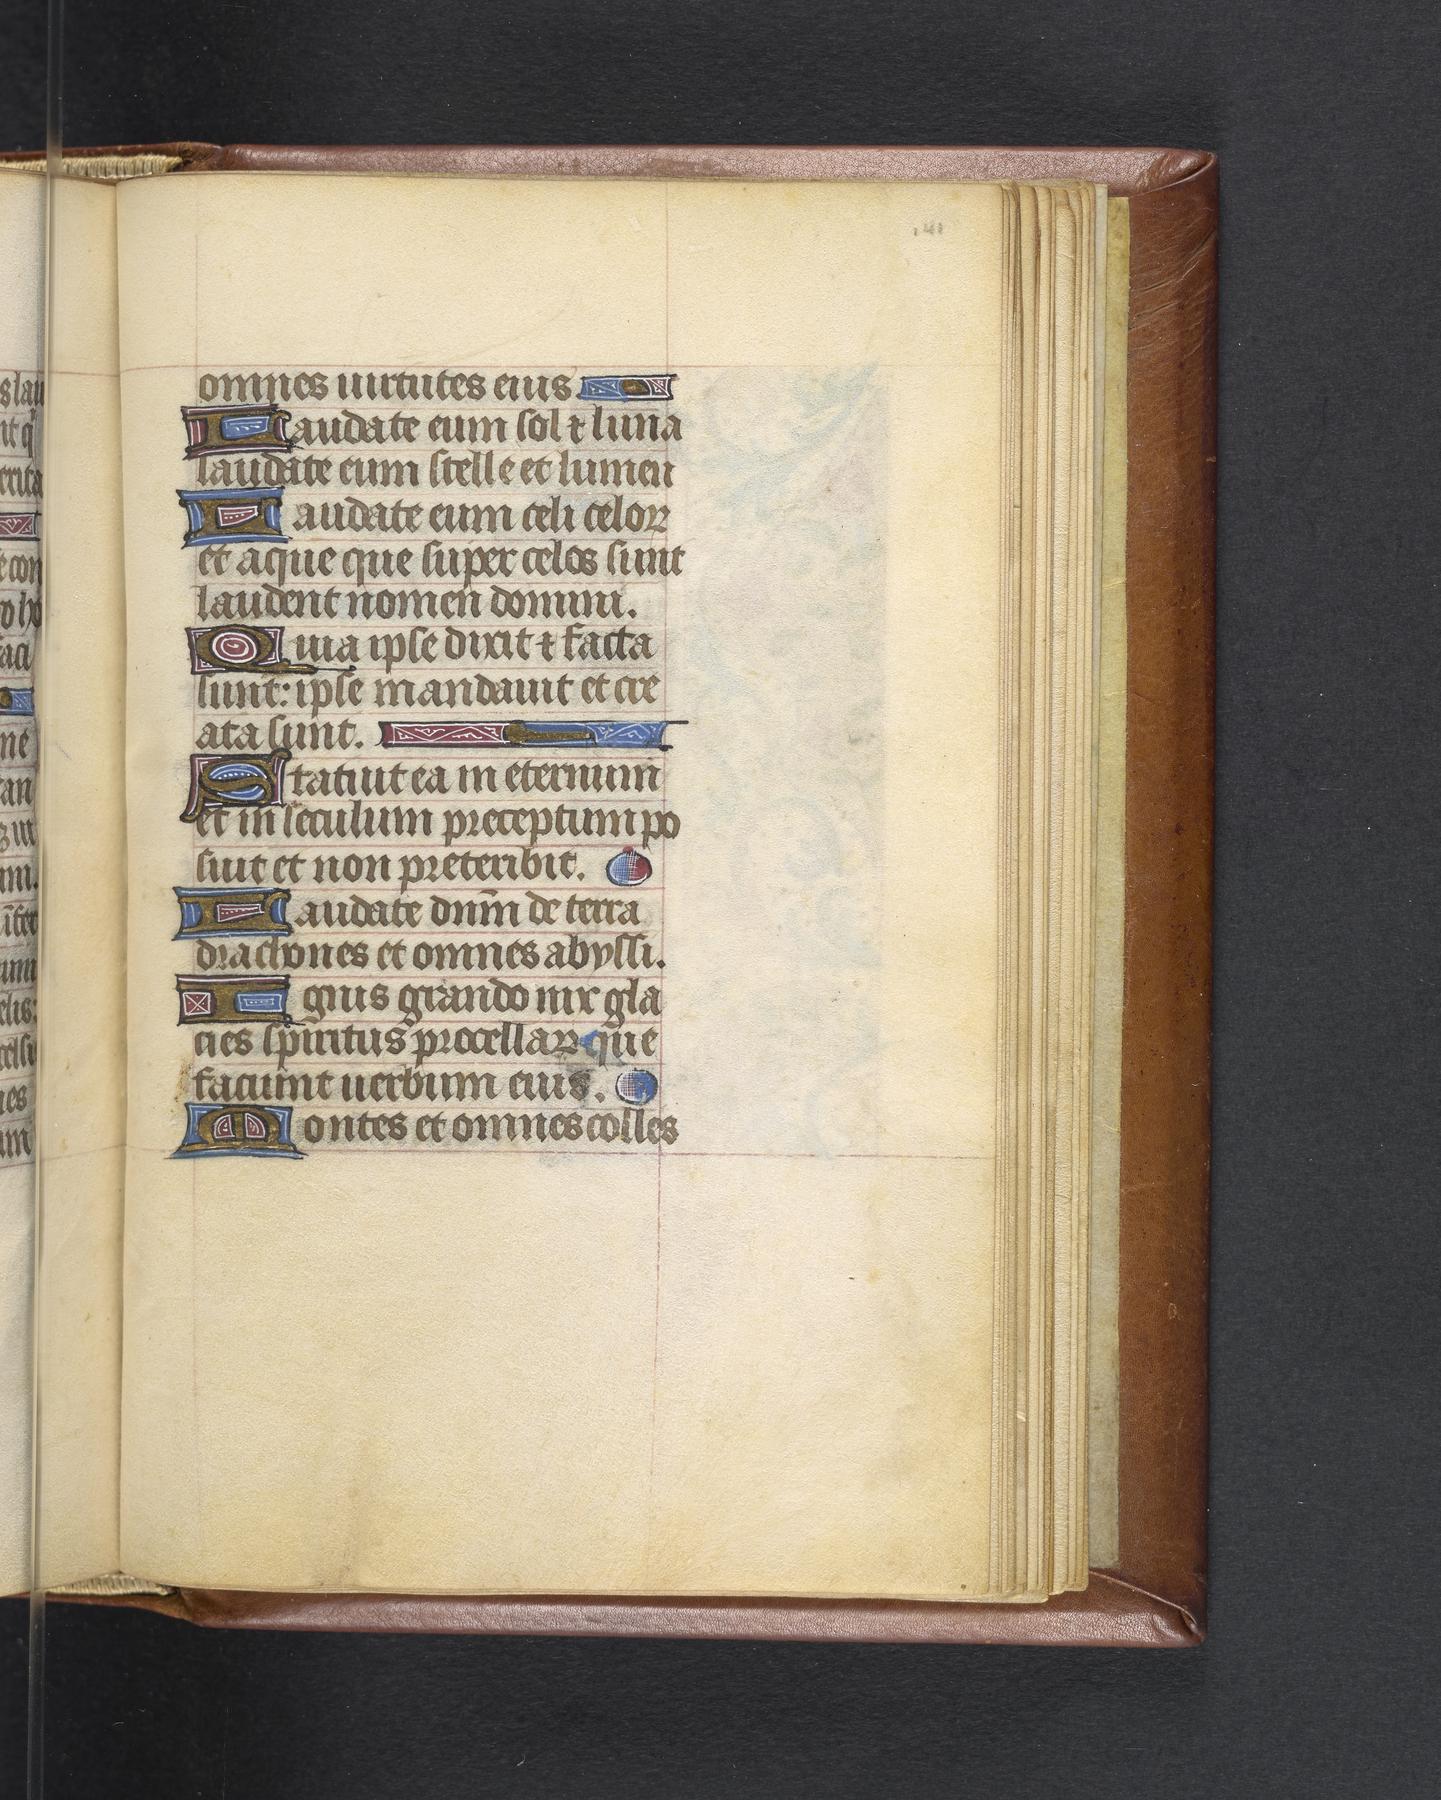 141
omnes uirtutes eius
Laudate eum sol ⁊ luna
laudate eum stelle et lumen
Laudate eum celi celoꝝ
et aque que super celos sunt
laudent nomen domini.
Quia ipse dixit ⁊ facta
sunt: ipse mandauit et cre
ata sunt.
Statuit ea in eternum
et in seculum preceptum po
suit et non preteribit.
Laudate dnm̄ de terra
drachones et omnes abyssi.
Ignis grando nix gla
cies spiritus procellaꝝ que
faciunt uerbum eius.
Montes et omnes colles